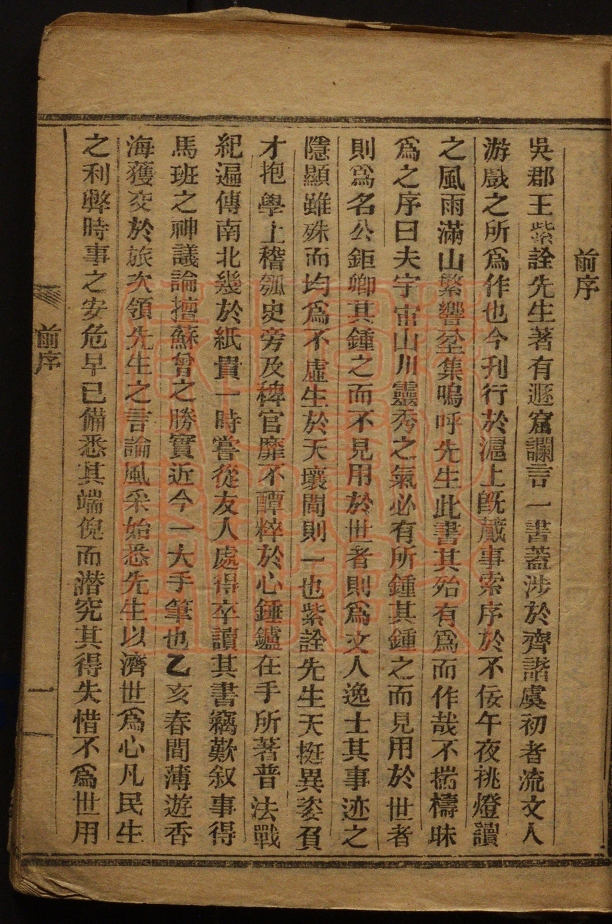 前序
吳郡王紫詮先生著有遯窟讕言一書蓋涉於齊諧虞初者流文人
游戲之所爲作也今刊行於滬上旣蕆事索序於不佞午夜挑燈讀
之風雨滿山繁響坌集嗚呼先生此書其殆有爲而作哉不揣檮昧
爲之序曰夫宇宙山川靈秀之氣必有所鍾其鍾之而見用於世者
則爲名公鉅卿其鍾之而不見用於世者則爲文人逸士其事迹之
隱顯雖殊而均爲不虛生於天壤間則一也紫詮先生天挺異姿負
才抱學上稽瓠史旁及稗官靡不醰粹於心錘鑪在手所著普法戰
紀遍傳南北幾於紙貴一時嘗從友人處得卒讀其書竊歎叙事得
馬班之神議論擅蘇曾之勝實近今一大手筆也乙亥春間薄遊香
海獲交於旅次領先生之言論風采始悉先生以濟世爲心凡民生
之利弊時事之安危早已備悉其端倪而潛究其得失惜不爲世用
前序
一